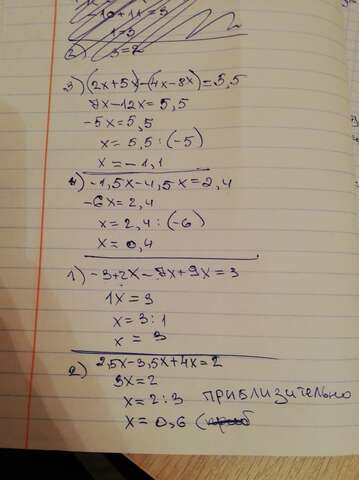 -10+11=3
1=3
2) 3=2
3) (2x+5x)-(4x-8x)=5,5
7x-12x=5,5
-5x=5,5
x=5,5:(-5)
x=-1,1
4) -1,5x-4,5x=2,4
-6x=2,4
x=2,4:(-6)
x=0,4
1) -3+2x-7x+9x=3
1x=3
x=3:1
x=3
2) 2,5x-3,5x+4x=2
3x=2
x=2:3 ПРИБЛИЗИТЕЛЬНО
x=0,6 (